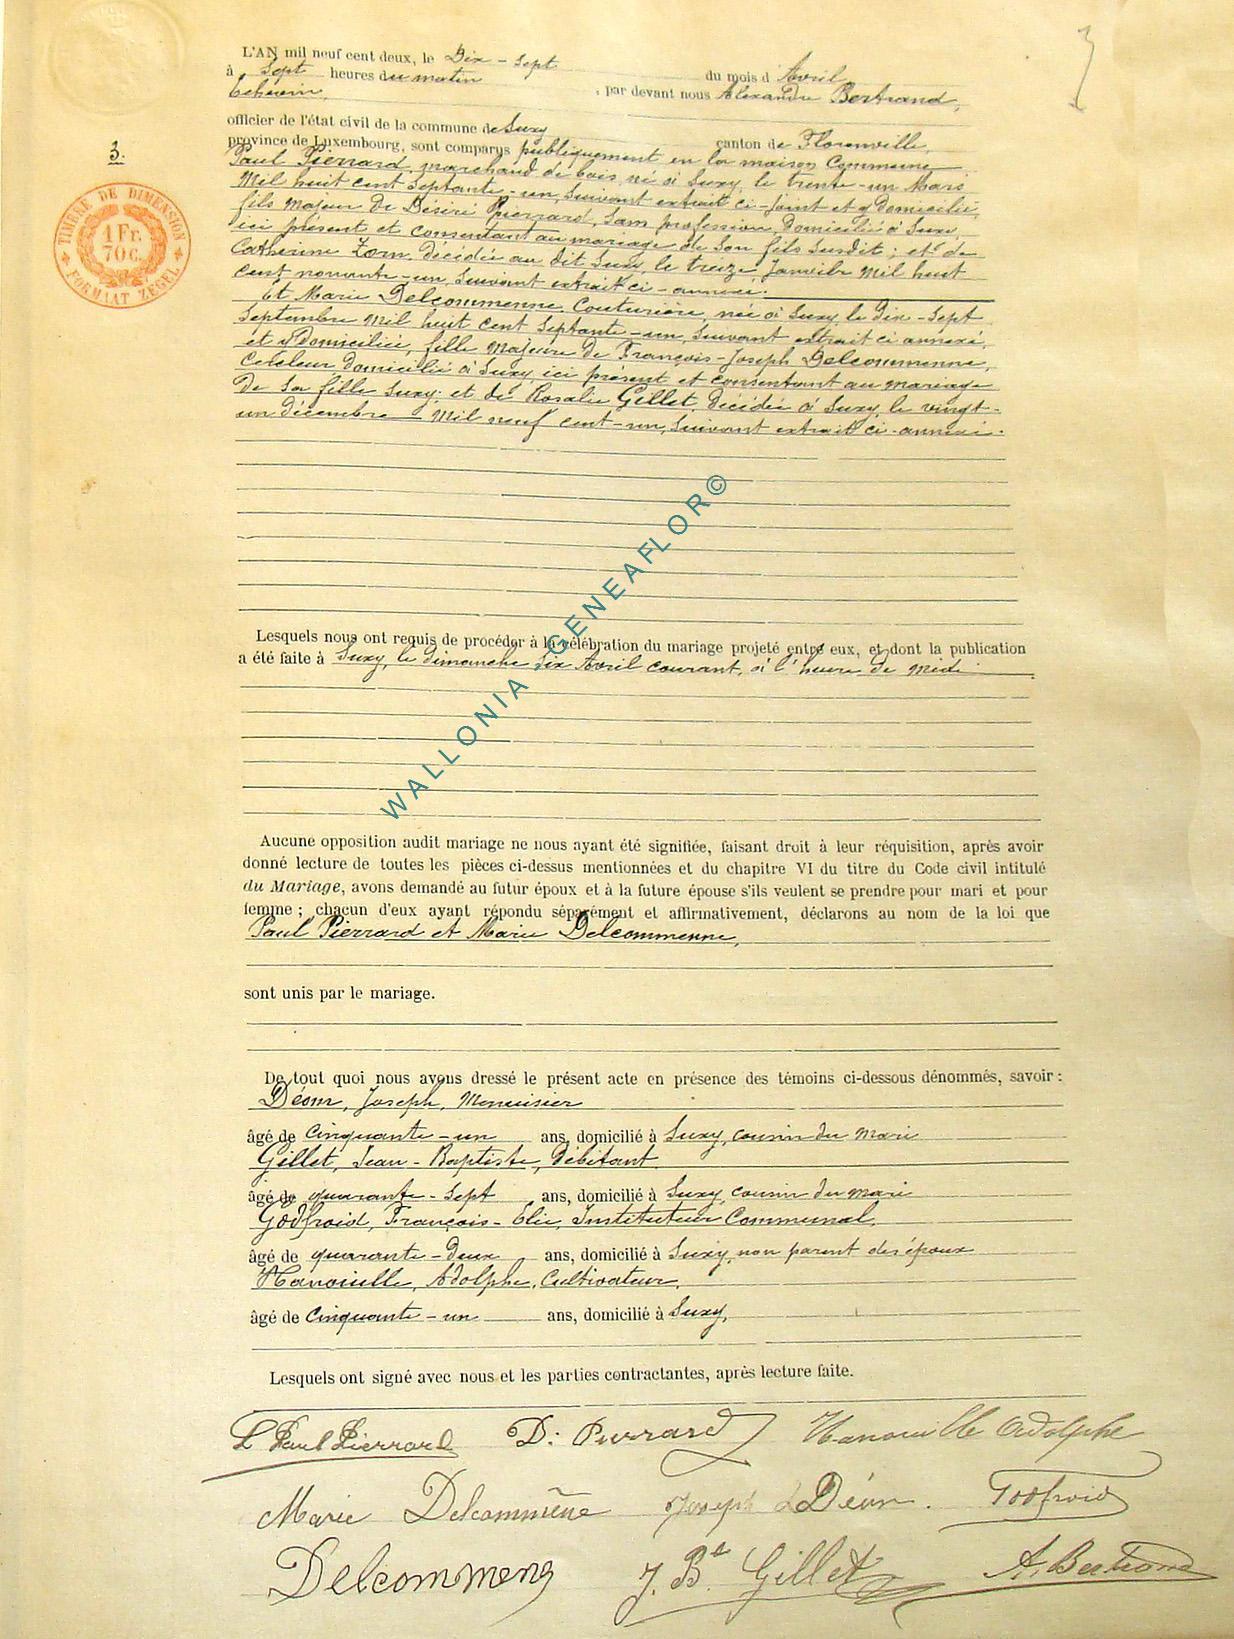 L'AN mil neuf cent deux, le Dix-sept du mois d'Avril
à Sept heures du matin, par devant nous Alexandre Bertrand,
Echevin,
officier de l'état civil de la commune de Suxy canton de Florenville,
province de Luxembourg, sont comparus publiquement en la maison Commune
3.
TIMBRE DE DIMENSION
1 Fr. 70 C.
FORMAAT ZEGEL
Paul Pierrard, marchand de bois, né à Suxy, le trente-un Mars
Mil huit cent septante-un, suivant extrait ci-joint et y domicilié,
fils majeur de Désiré Pierrard, sans profession, domicilié à Suxy,
ici présent et consentant au mariage de son fils susdit; et de
Catherine Zorn, décédée au dit Suxy, le treize Janvier Mil huit
cent nonante-un, suivant extrait ci-annexé.
Et Marie Delcommenne, Couturière, née à Suxy, le dix-sept
Septembre Mil huit cent septante-un, suivant extrait ci annexé,
et y domiciliée, fille majeure de François-Joseph Delcommenne,
domicilié à Suxy, ici présent et consentant au mariage
de sa fille Suxy; et de Rosalie Gillet, décédée à Suxy, le vingt-
un décembre Mil neuf cent-un, suivant extrait ci-annexé.
Lesquels nous ont requis de procéder à la célébration du mariage projeté entre eux, et dont la publication
a été faite à Suxy, le dimanche six Avril courant, à l'heure de Midi
WALLONIA GENEAFLOR©
Aucune opposition audit mariage ne nous ayant été signifiée, faisant droit à leur réquisition, après avoir
donné lecture de toutes les pièces ci-dessus mentionnées et du chapitre VI du titre du Code civil intitulé
du Mariage, avons demandé au futur époux et à la future épouse s'ils veulent se prendre pour mari et pour
femme ; chacun d'eux ayant répondu séparément et affirmativement, déclarons au nom de la loi que
Paul Pierrard et Marie Delcommenne,
sont unis par le mariage.
De tout quoi nous avons dressé le présent acte en présence des témoins ci-dessous dénommés, savoir :
Déom, Joseph, Menuisier
âgé de Cinquante-un ans, domicilié à Suxy, cousin du mari
Gillet, Jean-Baptiste, Débitant
âgé de quarante-sept ans, domicilié à Suxy, cousin du mari
Godfroid, François-Elie, Instituteur Communal,
âgé de quarante-deux ans, domicilié à Suxy, non parent des époux
Hanouille, Adolphe, Cultivateur,
âgé de Cinquante-un ans, domicilié à Suxy,
Lesquels ont signé avec nous et les parties contractantes, après lecture faite.
Paul Pierrard D: Pierrard Hanouille Adolphe
Marie Delcommène Joseph Déom. Godfroid
Delcommene J. Bte Gillet A. Bertrand